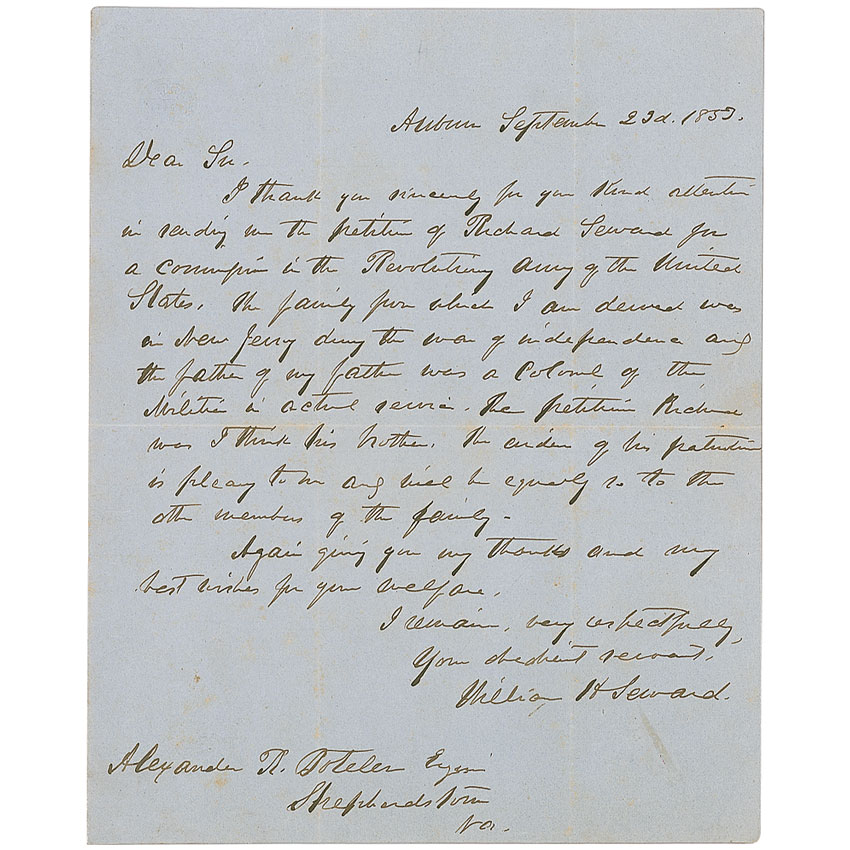 Auburn September 23d. 1853.
Dear Sir.
I thank you sincerely for your kind attention
in sending me the petition of Richard Seward for
a commission in the Revolutionary army of the United
States. The family from which I am derived was
in New Jersey during the war of independence and
the father of my father was a Colonel of the
Militia in actual service. The petitioner Richard
was I think his brother. The evidence of his patriotism
is pleasing to me and will be equally so to the
other members of the family.
Again giving you my thanks and my
best wishes for your welfare,
I remain, very respectfully,
Your obedient servant,
William H Seward.
Alexander R. Boteler Esqr
Shepherdstown
Va.